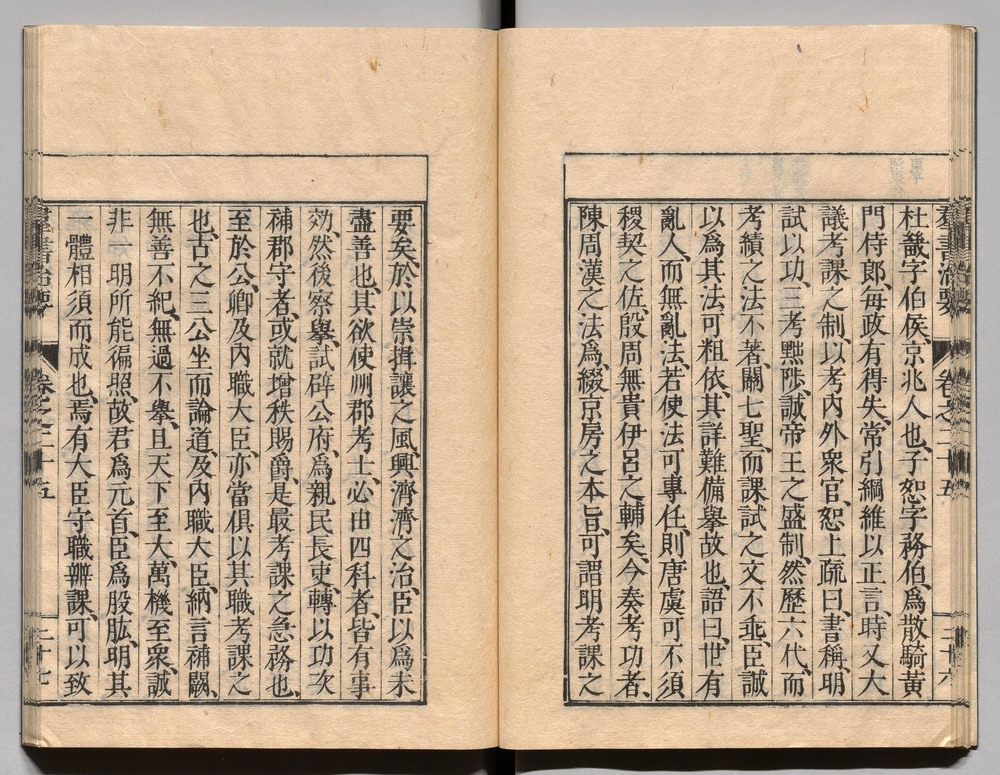 羣書治要 卷之二十五 二十六
杜畿字伯侯、京兆人也、子恕字務伯、爲散騎黃
門侍郎、每政有得失、常引綱維以正言、時又大
議考課之制、以考內外衆官、恕上疏曰、書稱、明
試以功、三考黜陟、誠帝王之盛制、然歷六代、而
考績之法不著、關七聖、而課試之文不垂、臣誠
以爲其法可粗依、其詳難備擧故也、語曰、世有
亂人、而無亂法、若使法可專任、則唐虞可不須
稷契之佐、殷周無貴伊呂之輔矣、今奏考功者、
陳周漢之法爲、綴京房之本旨、可謂明考課之
要矣、於以崇揖讓之風、興濟濟之治、臣以爲未
盡善也、其欲使州郡考士、必由四科者、皆有事
効、然後察擧、試辟公府、爲親民長吏、轉以功次
補郡守者、或就增秩賜爵、是最考課之急務也、
至於公、卿及內職大臣、亦當俱以其職考課之
也、古之三公坐而論道、及內職大臣、納言補闕、
無善不紀、無過不擧、且天下至大、萬機至衆、誠
非一明所能徧照、故君爲元首、臣爲股肱、明其
一體相須而成也、焉有大臣守職辨課、可以致
羣書治要 卷之二十五 二十七